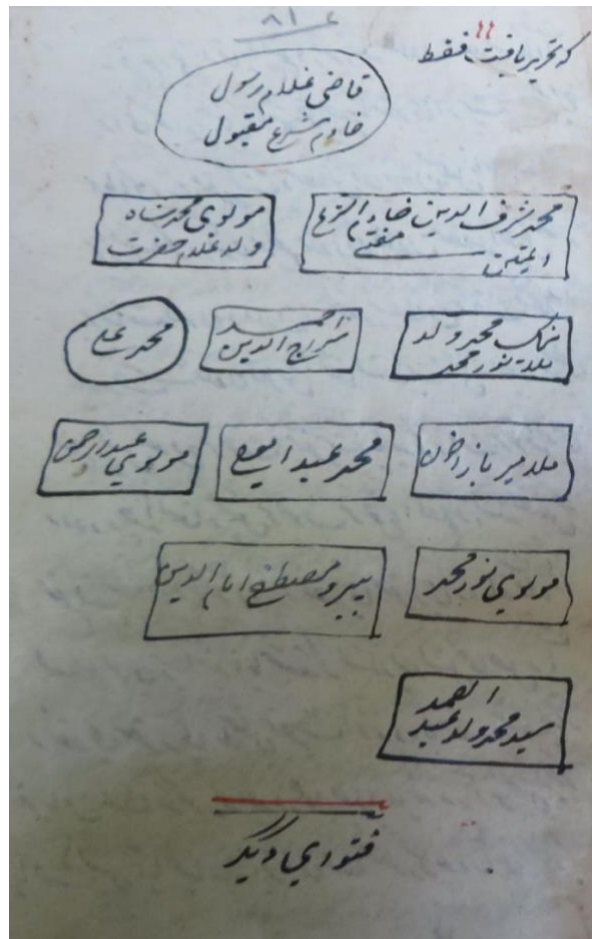 ۸۱
که تحریر یافت فقط
قاضی غلام رسول
خادم شرع مقبول
محمد شرف الدین خادم الشرع
مفتی
مولوی محمد شاه
ولد غلام حضرت
محمد ولد
ملا نور محمد
محمد
سراج الدین
محمد علی
ملا میر باز اخون
محمد عبد
مولوی عبدالرحمن
مولوی نور محمد
پیرو مصطفی امام الدین
سید محمد ولد عبد
الصمد
فتوای دیگر